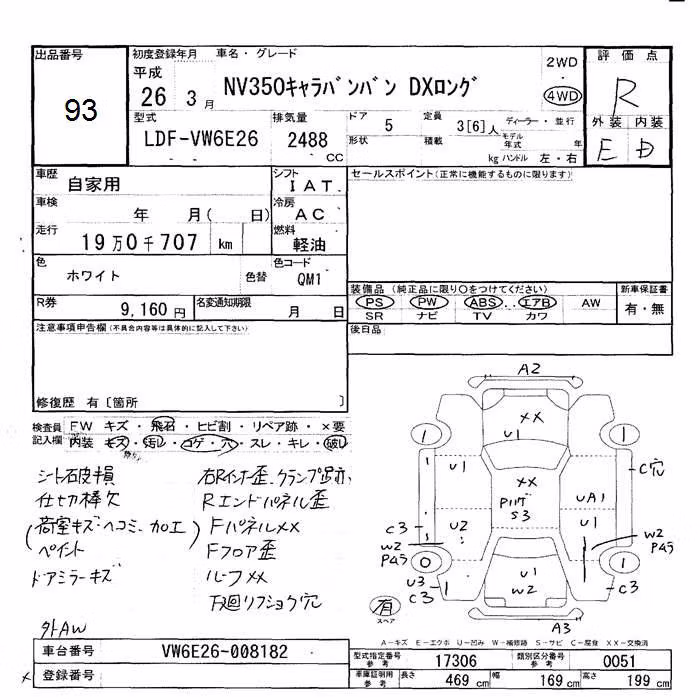 出品番号
93
初度登録年月 車名・グレード
平成
26 3 月
NV350キャラバンバン DXロング
2WD
・
4WD
評価点
R
外装 内装
E D
型式
LDF-VW6E26
排気量
2488
CC
ドア 5 定員 3[6]人 ディーラー・並行
形状 積載 モデル年式 年
kg ハンドル 左・右
車歴 自家用
シフト IAT
セールスポイント(正常に機能するものに限ります)
車検 年 月( 日)
冷房 AC
走行 19万0千707 km
燃料 軽油
色 ホワイト 色替
色コード QM1
装備品(純正品に限り○をつけてください) 新車保証書
PS PW ABS エアB AW 有・無
SR ナビ TV カワ
R券 9,160円 名変通知期限 月 日
後日品
注意事項申告欄(不具合内容等は具体的に記入して下さい)
修復歴 有〔箇所 〕
検査員記入欄
FW キズ・飛石・ヒビ割・リペア跡・×要
内装 キズ・汚れ・コゲ・穴・スレ・キレ・破れ
シート破損 右Rインナー歪、クランプ
仕切棒欠 Rエンドパネル歪
(荷室キズ・ヘコミ、加工) Fパネル××
ペイント Fフロア歪
ドアミラーキズ ルーフ××
下廻リフショク穴
外AW
A2
××
U1
1 1
U1 ×× C穴
Pハゲ
S3
UA1
U2 U1
C3 W2
W2 Pムラ
Pムラ
0 1
U1
W2
U3 1 C3
C3
有
スペア
A3
A-キズ E-エクボ U-凹み W-補修跡 S-サビ C-腐食 XX-交換済
車台番号 VW6E26-008182
登録番号
×
型式指定番号 参考 17306 類別区分番号 参考 0051
車庫証明用 参考 長さ 469 cm 幅 169 cm 高さ 199 cm